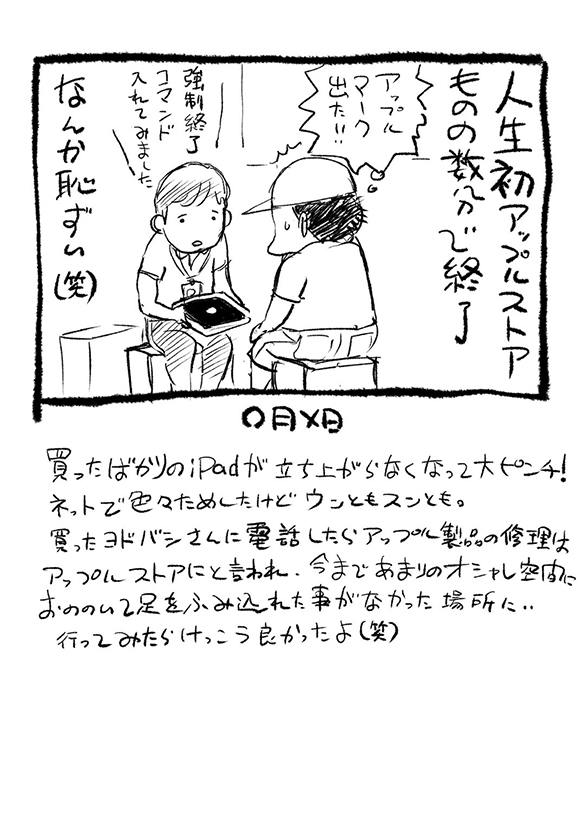 人生初アップルストア
ものの数分で終了
アップル
マーク
出た!!
強制終了
コマンド
入れてみました
なんか恥ずい(笑)
〇月×日
買ったばかりのiPadが立ち上がらなくなって大ピンチ!
ネットで色々ためしたけどウンともスンとも。
買ったヨドバシさんに電話したらアップル製品の修理は
アップルストアにと言われ、今まであまりのオシャレ空間に
おののいて足をふみ込れた事がなかった場所に‥
行ってみたらけっこう良かったよ(笑)